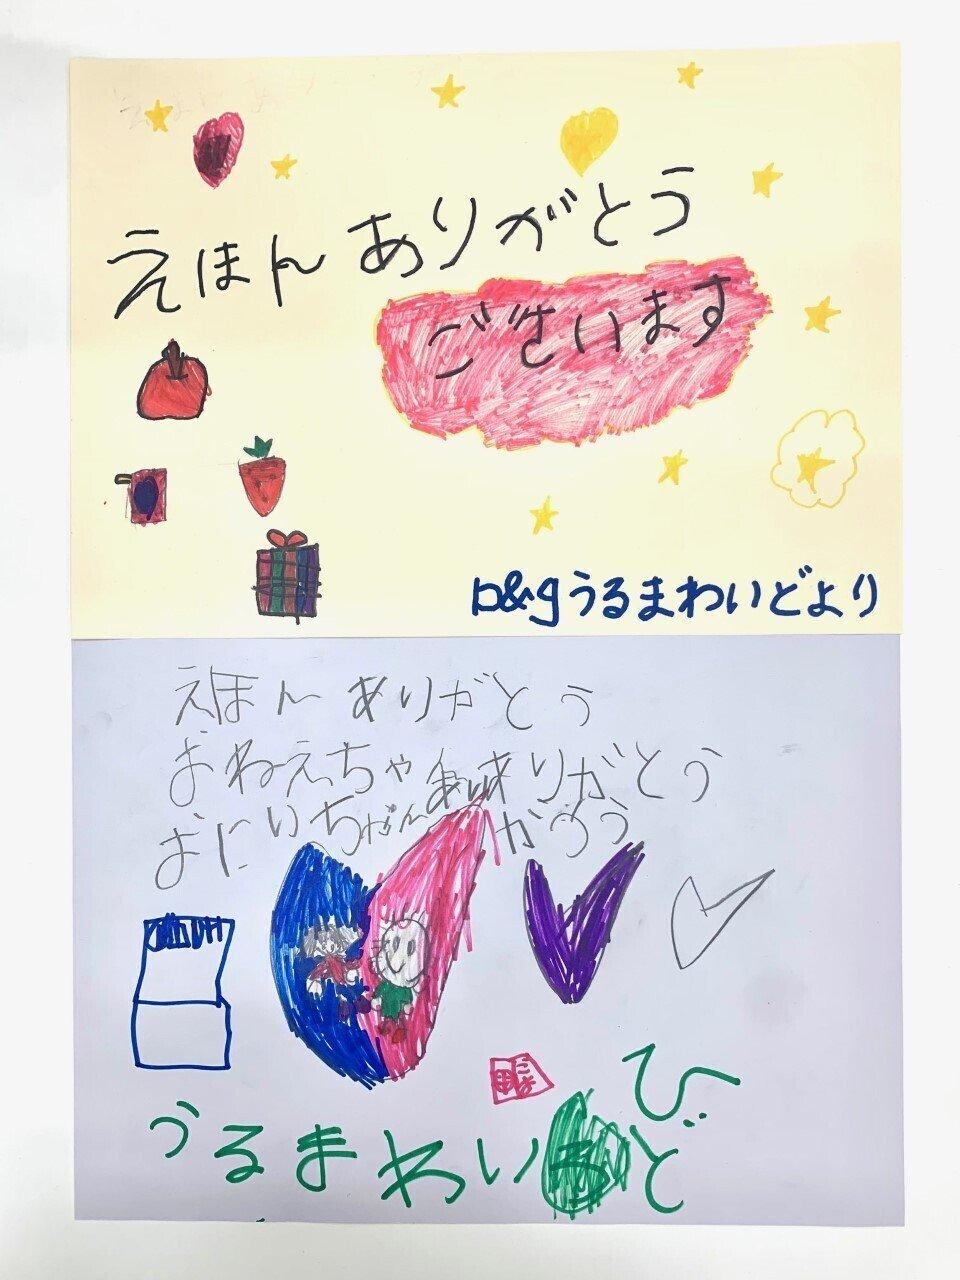 えほん ありがとう
ございます
b&gうるまわいどより
えほん ありがとう
おねえちゃん ありがとう
おにいちゃん
うるまわいど